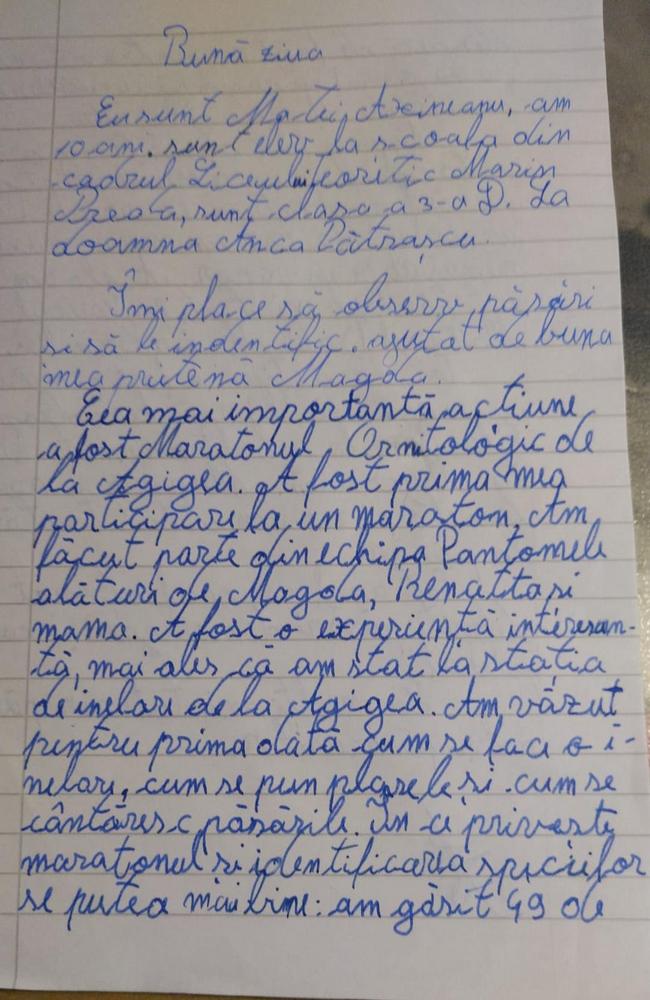 Bună ziua
Eu sunt Matei Axineanu, am
10 ani. sunt elev la scoala din
cadrul Liceului teoritic Marin
Preda, sunt clasa a 3-a D. La
doamna Anca Pătrașcu.
Îmi place să observ păsări
si să le indentific. ajutat de buna
mea pritenă Magda.
Cea mai importantă actiune
a fost Maratonul Ornitologic de
la Agigea. A fost prima mea
participare la un maraton. Am
făcut parte din echipa Pantomele
alături de Magda, Renatta si
mama. A fost o experientă interesan-
tă, mai ales că am stat la stația
de inelare de la Agigea. Am văzut
pentru prima dată cum se face o i-
nelare, cum se pun plasele si cum se
cântăresc păsările. În ce priveste
maratonul si identificarea speciilor
se putea mai bine: am găsit 49 de